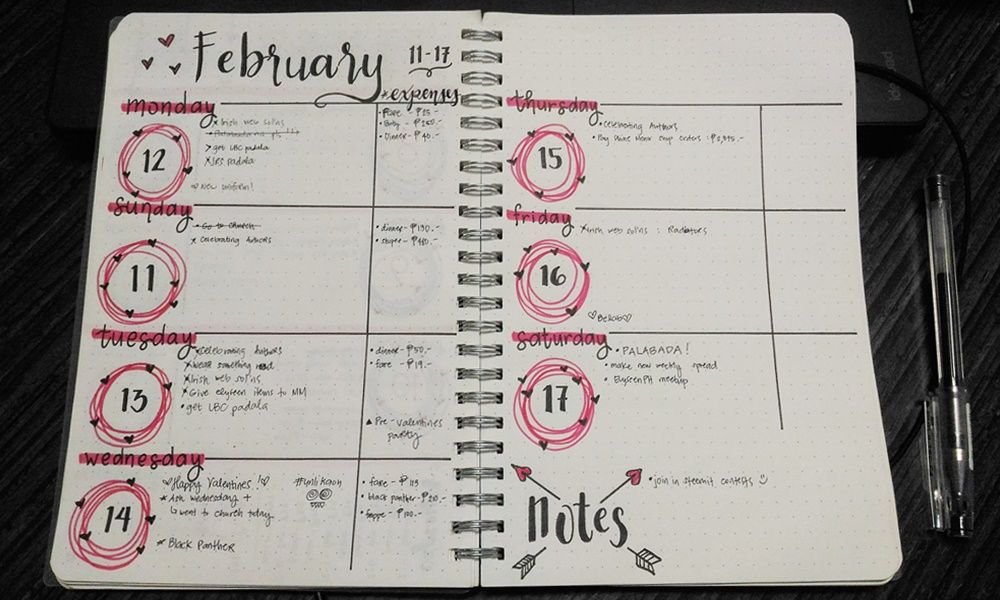 February 11-17
* expenses
monday
12
x Irish web solns
> get LBC padala
x IRS padala
New uniform!
• Fare - ₱25.-
• Baby - ₱250.-
• Dinner - ₱40.-
sunday
11
• Go to church
x Celebrating Authors
• dinner - ₱190.-
tuesday
13
x Celebrating Authors
x Wear something red
x Irish web solns
x Give elyseen items to MM
• get LBC padala
• dinner - ₱50.-
• fare - ₱19.-
▲ Pre-valentines
party
wednesday
14
♡ Happy Valentines! ♡
* Ash wednesday +
↳ went to church today
* Black Panther
• fare - ₱113
• black panther - ₱210.-
• frappe - ₱100.-
thursday
15
• Celebrating Authors
friday
16
x Irish web solns : Radiators
saturday
17
• PALABADA!
• make new weekly spread
• ElyseenPH meetup
Notes
• join in steemit contests